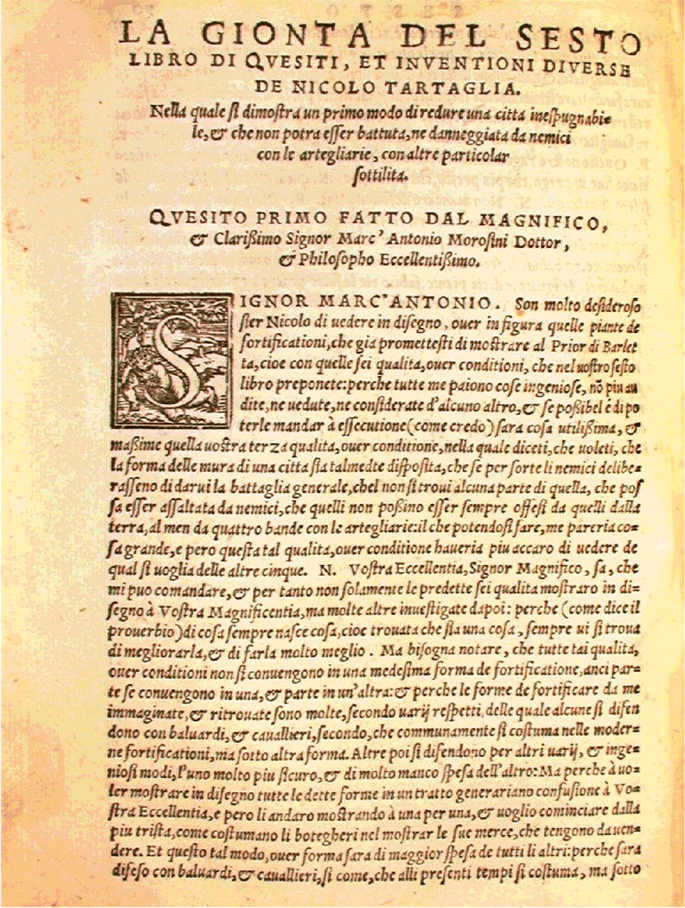 LA GIONTA DEL SESTO
LIBRO DI QVESITI, ET INVENTIONI DIVERSE
DE NICOLO TARTAGLIA.
Nella quale si dimostra un primo modo di redure una citta inespugnabi=
le, & che non potra esser battuta, ne danneggiata da nemici
con le artegliarie, con altre particolar
sottilita.
QVESITO PRIMO FATTO DAL MAGNIFICO,
& Clarißimo Signor Marc' Antonio Morosini Dottor,
& Philosopho Eccellentißimo.
SIGNOR MARC'ANTONIO. Son molto desideroso
sier Nicolo di uedere in disegno, ouer in figura quelle piante de
fortificationi, che gia promettesti di mostrare al Prior di Barlet
ta, cioe con quelle sei qualita, ouer conditioni, che nel uostro sesto
libro preponete: perche tutte me paiono cose ingeniose, nõ piu au
dite, ne uedute, ne considerate d'alcuno altro, & se poßibel è di po
terle mandar à essecutione (come credo) sara cosa utilißima, &
maßime quella uostra terza qualita, ouer conditione, nella quale diceti, che uoleti, che
la forma delle mura di una citta sia talmedte disposita, che se per sorte li nemici delibe=
rasseno di darui la battaglia generale, chel non si troui alcuna parte di quella, che pos
sa esser assaltata da nemici, che quelli non poßino esser sempre offesi da quelli dalla
terra, al men da quattro bande con le artegliarie: il che potendosi fare, me pareria co=
sa grande, e pero questa tal qualita, ouer conditione haueria piu accaro di uedere de
qual si uoglia delle altre cinque. N. Vostra Eccellentia, Signor Magnifico, sa, che
mi puo comandare, & per tanto non solamente le predette sei qualita mostraro in di=
segno à Vostra Magnificentia, ma molte altre inuestigate dapoi: perche (come dice il
prouerbio) di cosa sempre nasce cosa, cioe trouata che sia una cosa, sempre ui si troua
di megliorarla, & di farla molto meglio. Ma bisogna notare, che tutte tai qualita,
ouer conditioni non si conuengono in una medesima forma de fortificatione, anci par=
te se conuengono in una, & parte in un'altra: & perche le forme de fortificare da me
immaginate, & ritrouate sono molte, secondo uarij respetti, delle quale alcune si difen
dono con baluardi, & cauallieri, secondo, che communamente si costuma nelle moder=
ne fortificationi, ma sotto altra forma. Altre poi si difendono per altri uarij, & inge=
niosi modi, l'uno molto piu sicuro, & di molto manco spesa dell'altro: Ma perche à uo=
ler mostrare in disegno tutte le dette forme in un tratto generariano confusione à Vo=
stra Eccellentia, e pero li andaro mostrando à una per una, & uoglio cominciare dalla
piu trista, come costumano li botegheri nel mostrar le sue merce, che tengono da uen=
dere. Et questo tal modo, ouer forma sara di maggior spesa de tutti li altri: perche sara
difeso con baluardi, & cauallieri, si come, che alli presenti tempi si costuma, ma sotto